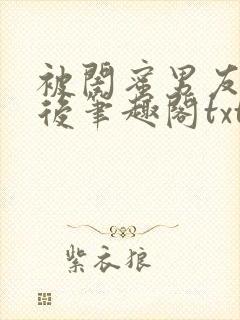 被閨蜜男友
後筆趣閣txt
紫衣狼